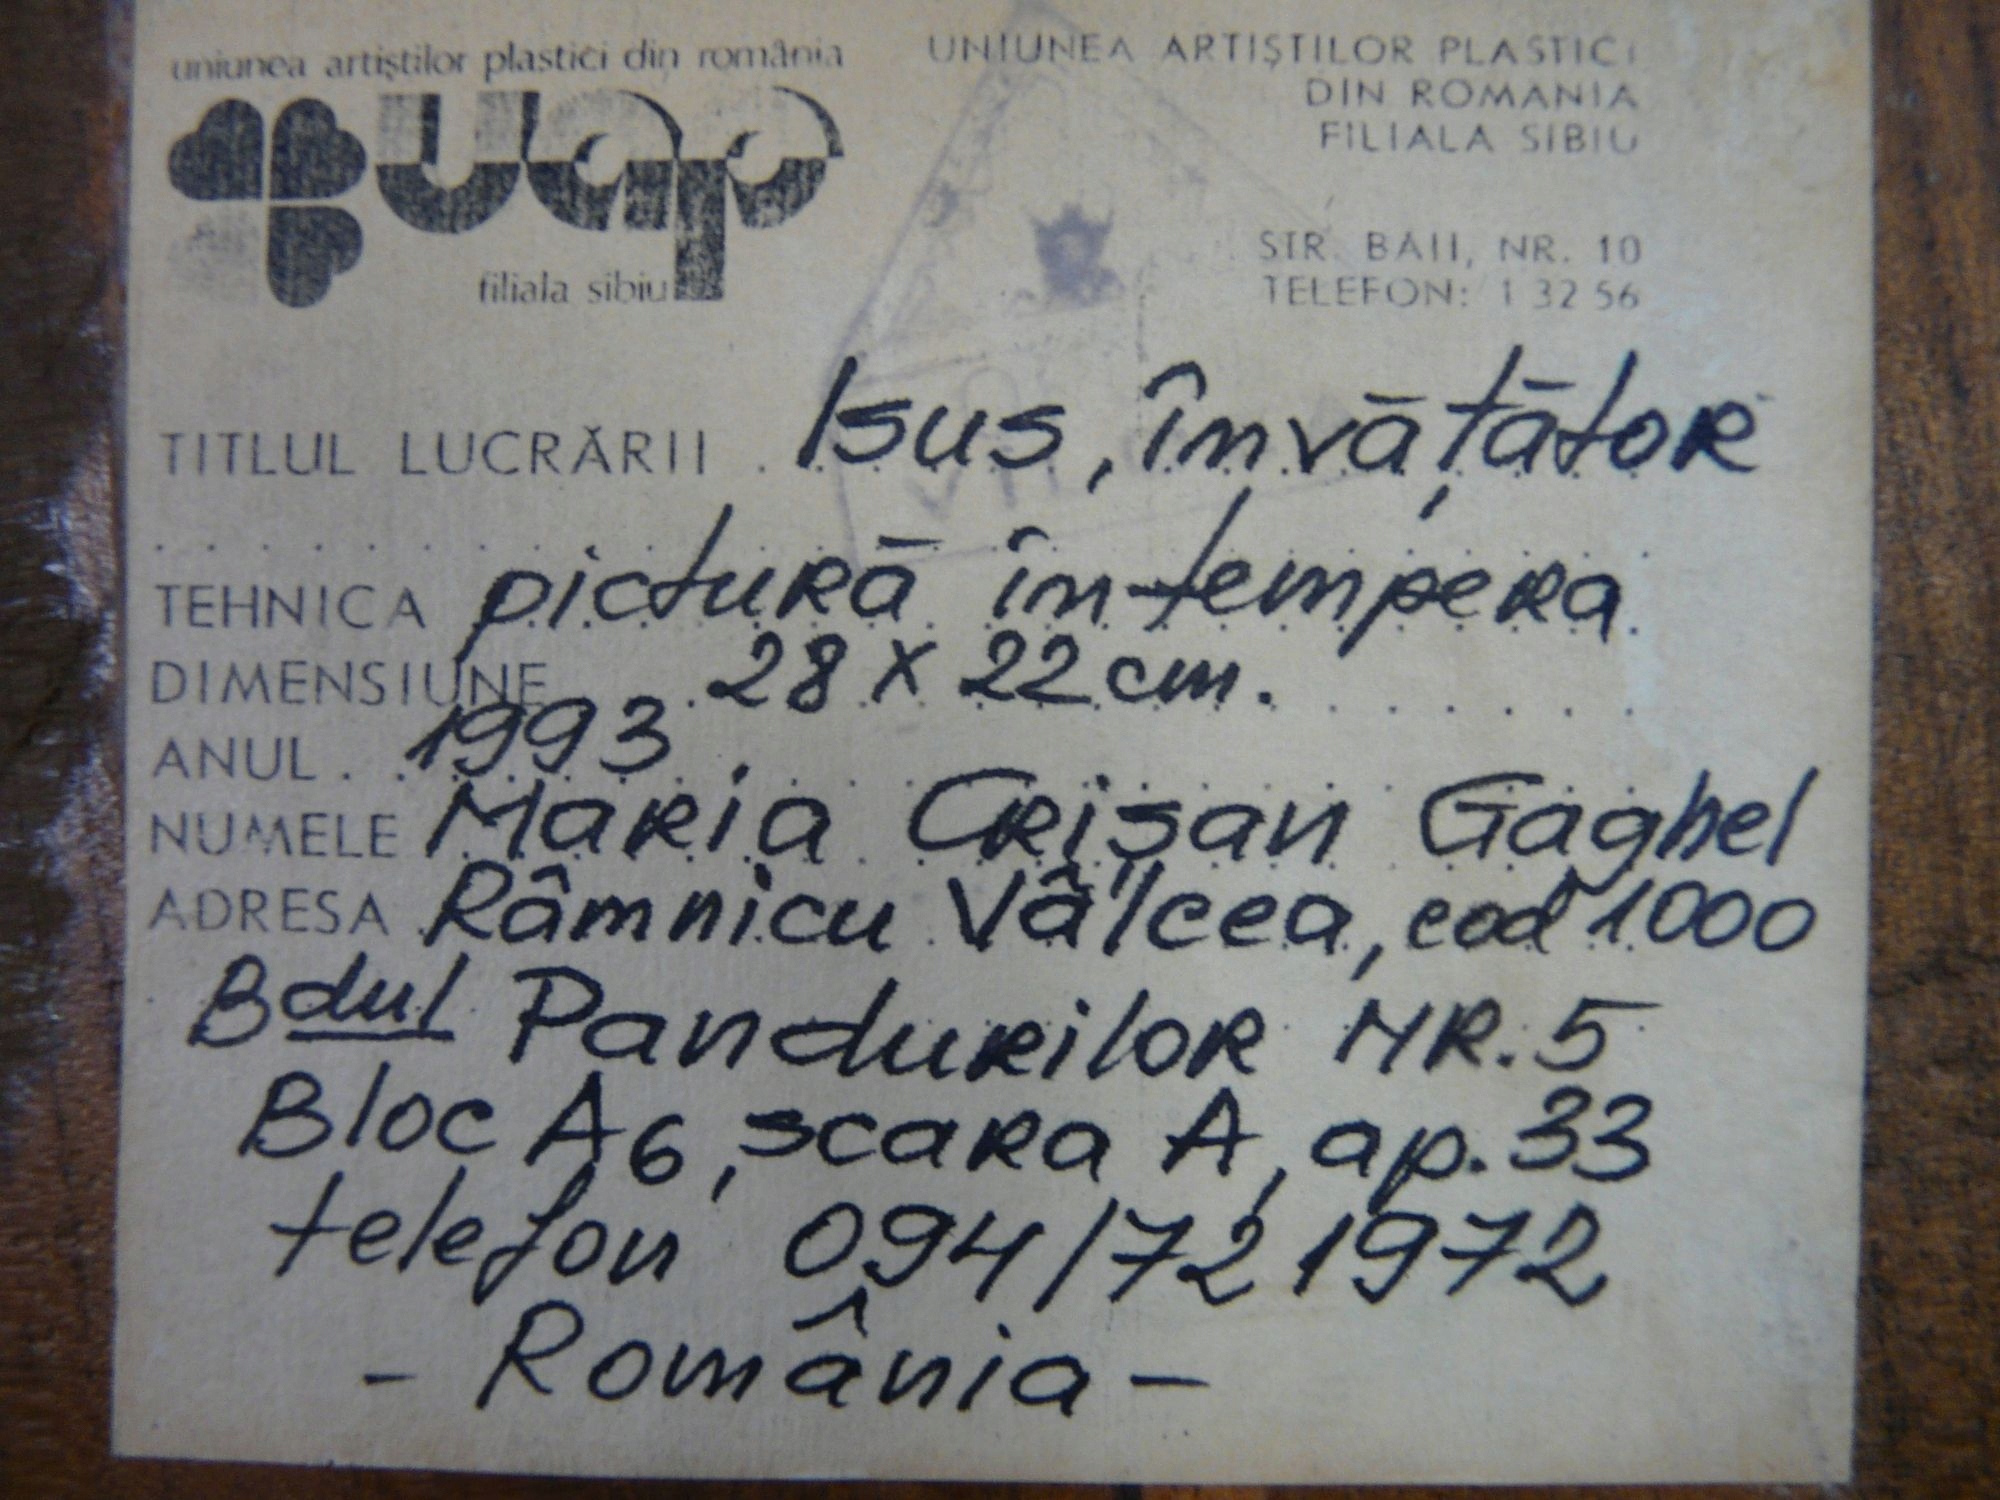 uniunea artiștilor plastici din românia
uap
filiala sibiu
UNIUNEA ARTIȘTILOR PLASTICI
DIN ROMANIA
FILIALA SIBIU
STR. BAII, NR. 10
TELEFON: 1 32 56
TITLUL LUCRĂRII . Isus, învățător
TEHNICA pictură în tempera
DIMENSIUNE 28 X 22 cm.
ANUL . . 1993
NUMELE Maria Crișan Gaghel
ADRESA Râmnicu Vâlcea, cod 1000
Bdul Pandurilor NR. 5
Bloc A6, scara A, ap. 33
telefon 094/721972
- România -